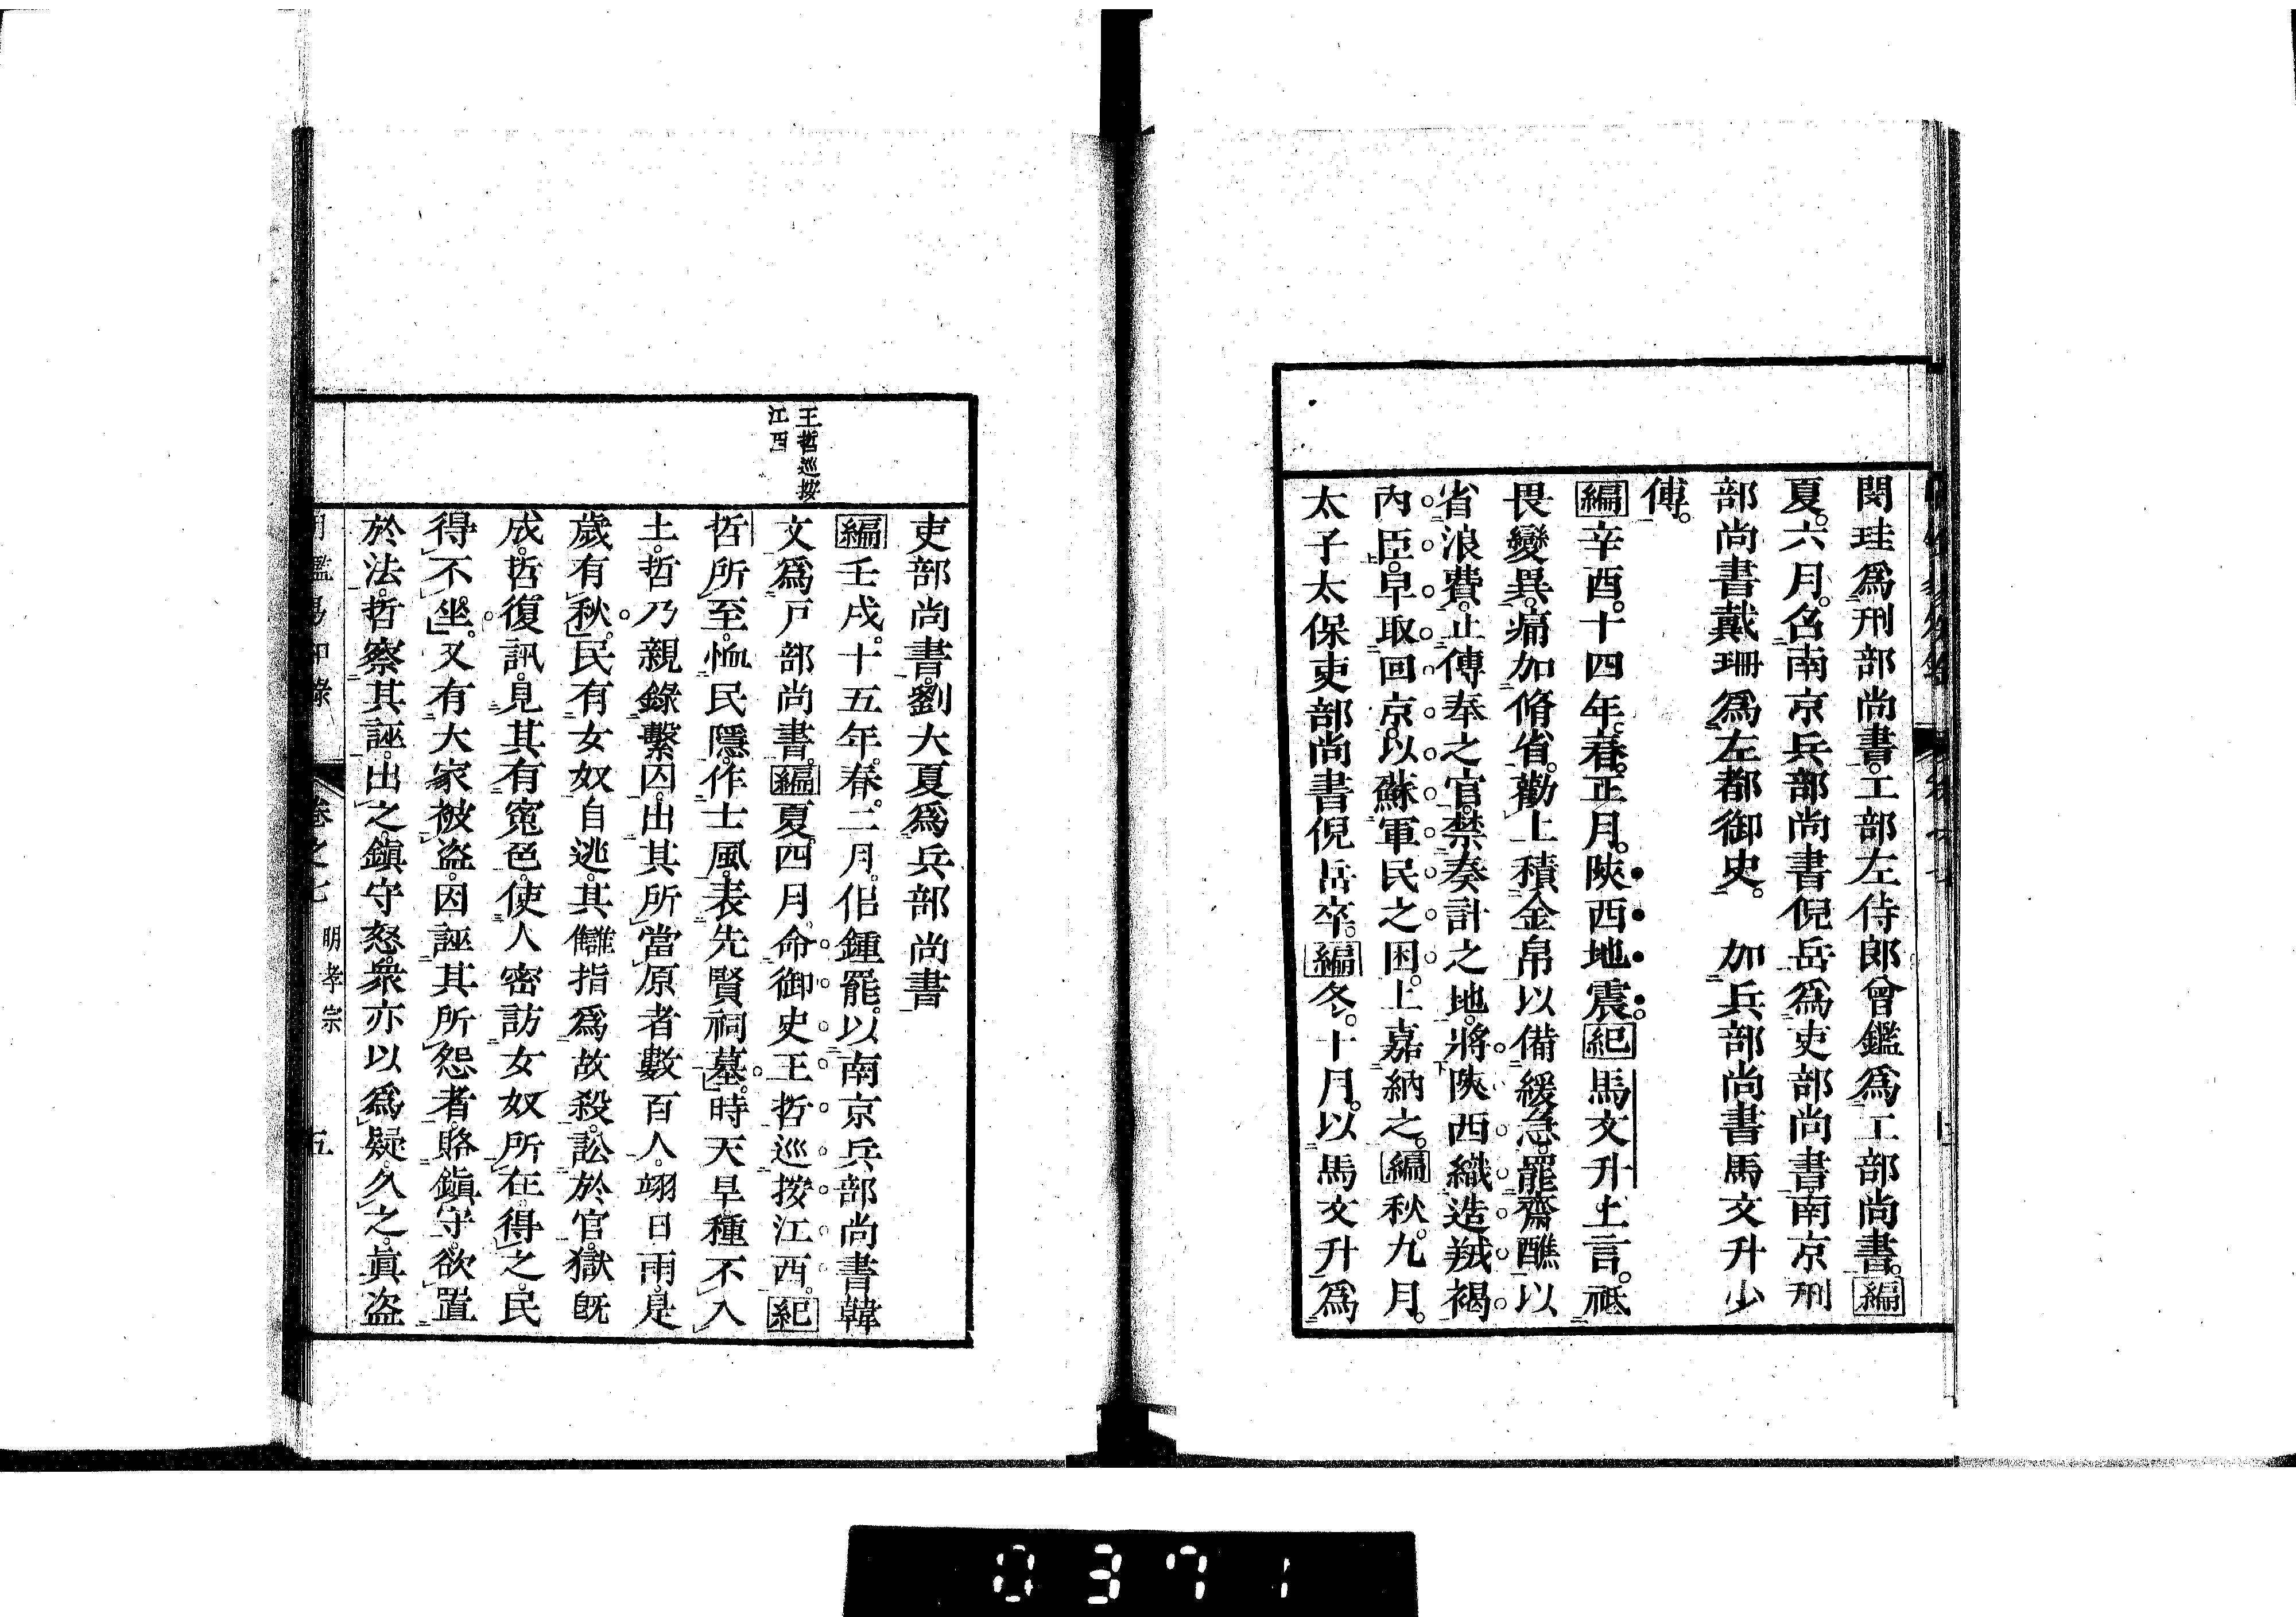 閔珪爲刑部尚書。工部左侍郎曾鑑爲工部尚書。編
夏。六月。召南京兵部尚書倪岳爲吏部尚書。南京刑
部尚書戴珊爲左都御史。　加兵部尚書馬文升少
傅。
編辛酉。十四年。春。正月。陝西地震。紀馬文升上言。祗
畏變異。痛加脩省。勸上積金帛以備緩急。罷齋醮以
省浪費。止傳奉之官。禁奏計之地。將陝西織造羢褐
內臣。早取回京。以蘇軍民之困。上嘉納之。編秋。九月。
太子太保吏部尚書倪岳卒。編冬。十月。以馬文升爲
王哲巡按
江西
吏部尚書。劉大夏爲兵部尚書
編壬戌。十五年。春。二月。佀鍾罷。以南京兵部尚書韓
文爲戸部尚書。編夏。四月。命御史王哲巡按江西。紀
哲所至。恤民隱。作士風。表先賢祠墓。時天旱種不入
土。哲乃親錄繫囚。出其所當原者數百人。翊日雨。是
歲有秋。民有女奴自逃。其讎指爲故殺。訟於官。獄旣
成。哲復訊。見其有寃色。使人密訪女奴所在。得之。民
得不坐。又有大家被盗。因誣其所怨者。賂鎭守。欲置
於法。哲察其誣。出之。鎭守怒。衆亦以爲疑。久之。眞盗
卷之七　明孝宗　五
0371